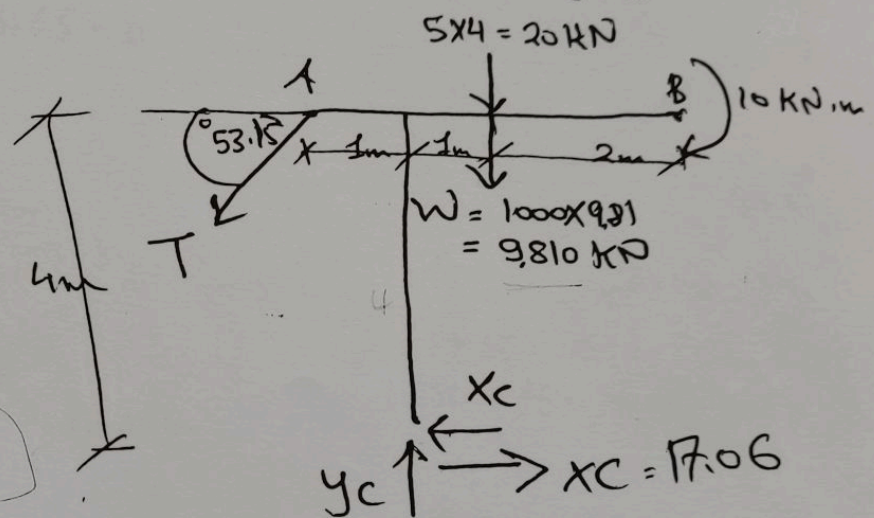 5X4 = 20 KN
A
B
10 KN.m
53.15°
1m
1m
2m
T
W = 1000X9,81
= 9,810 KN
4m
4
XC
YC
XC = 17.06